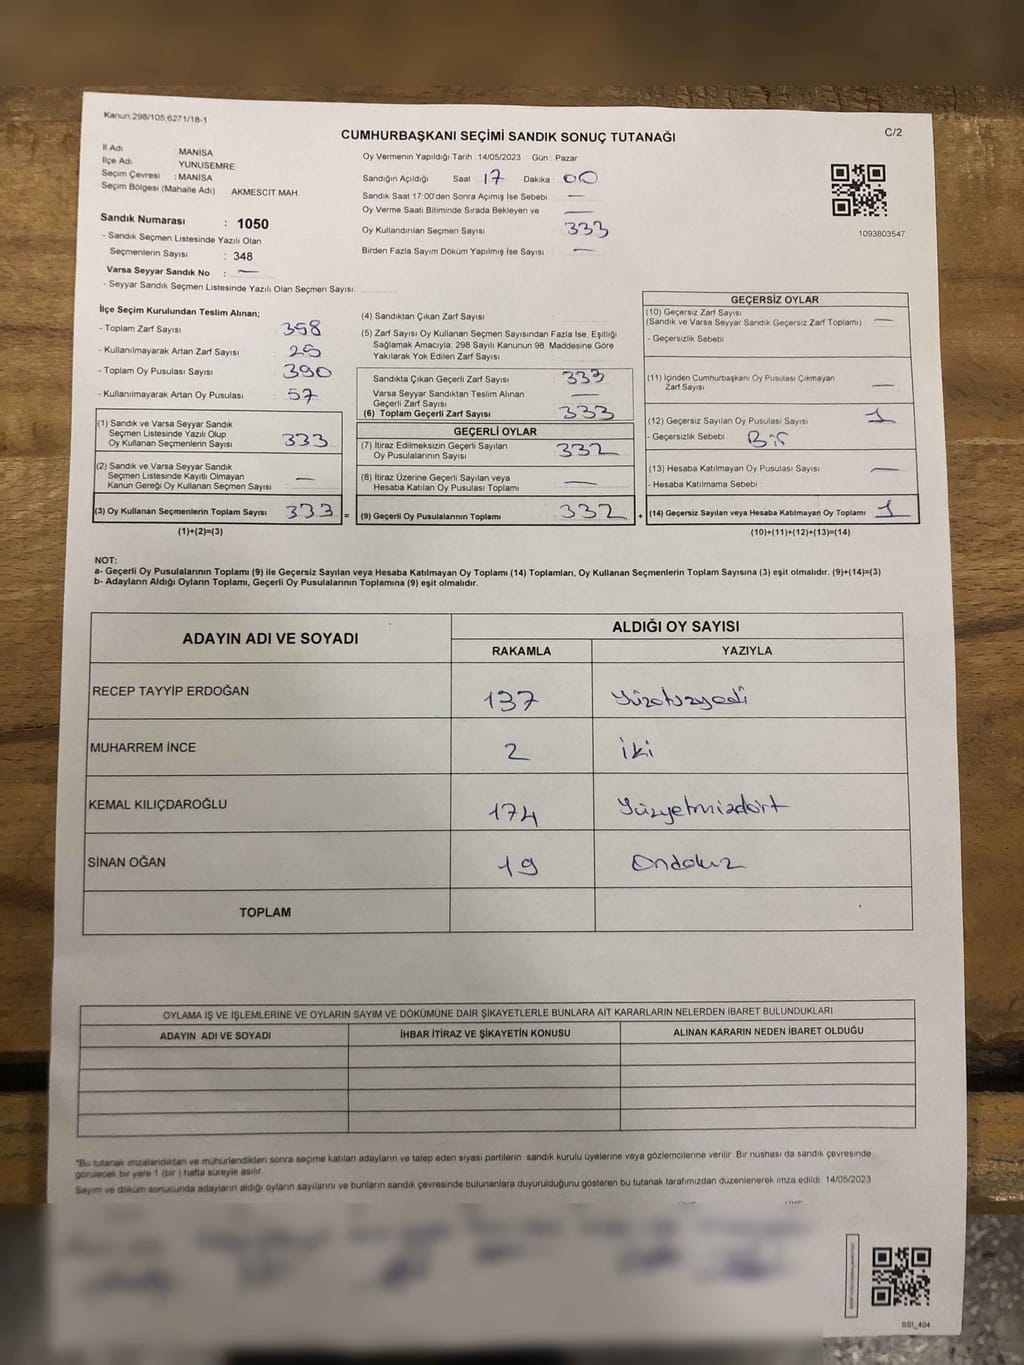 Kanun:298/105,6271/18-1
C/2
CUMHURBAŞKANI SEÇİMİ SANDIK SONUÇ TUTANAĞI
İl Adı MANİSA
İlçe Adı YUNUSEMRE
Seçim Çevresi : MANİSA
Seçim Bölgesi (Mahalle Adı) : AKMESCİT MAH.
Sandık Numarası : 1050
- Sandık Seçmen Listesinde Yazılı Olan
Seçmenlerin Sayısı : 348
Varsa Seyyar Sandık No : —
- Seyyar Sandık Seçmen Listesinde Yazılı Olan Seçmen Sayısı:
Oy Vermenin Yapıldığı Tarih : 14/05/2023 Gün : Pazar
Sandığın Açıldığı Saat 17 Dakika : 00
Sandık Saat 17:00'den Sonra Açımış İse Sebebi —
Oy Verme Saati Bitiminde Sırada Bekleyen ve —
Oy Kullandırılan Seçmen Sayısı 333
Birden Fazla Sayım Döküm Yapılmış İse Sayısı —
1093803547
İlçe Seçim Kurulundan Teslim Alınan;
- Toplam Zarf Sayısı 358
- Kullanılmayarak Artan Zarf Sayısı 25
- Toplam Oy Pusulası Sayısı 390
- Kullanılmayarak Artan Oy Pusulası 57
(1) Sandık ve Varsa Seyyar Sandık
Seçmen Listesinde Yazılı Olup
Oy Kullanan Seçmenlerin Sayısı 333
(2) Sandık ve Varsa Seyyar Sandık
Seçmen Listesinde Kayıtlı Olmayan
Kanun Gereği Oy Kullanan Seçmen Sayısı —
(3) Oy Kullanan Seçmenlerin Toplam Sayısı 333 =
(1)+(2)=(3)
(4) Sandıktan Çıkan Zarf Sayısı
(5) Zarf Sayısı Oy Kullanan Seçmen Sayısından Fazla İse, Eşitliği
Sağlamak Amacıyla, 298 Sayılı Kanunun 98. Maddesine Göre
Yakılarak Yok Edilen Zarf Sayısı
Sandıkta Çıkan Geçerli Zarf Sayısı 333
Varsa Seyyar Sandıktan Teslim Alınan
Geçerli Zarf Sayısı —
(6) Toplam Geçerli Zarf Sayısı 333
GEÇERLİ OYLAR
(7) İtiraz Edilmeksizin Geçerli Sayılan
Oy Pusulalarının Sayısı 332
(8) İtiraz Üzerine Geçerli Sayılan veya
Hesaba Katılan Oy Pusulası Toplamı —
(9) Geçerli Oy Pusulalarının Toplamı 332 +
GEÇERSİZ OYLAR
(10) Geçersiz Zarf Sayısı
(Sandık ve Varsa Seyyar Sandık Geçersiz Zarf Toplamı) —
- Geçersizlik Sebebi
(11) İçinden Cumhurbaşkanı Oy Pusulası Çıkmayan
Zarf Sayısı —
(12) Geçersiz Sayılan Oy Pusulası Sayısı 1
- Geçersizlik Sebebi Bir
(13) Hesaba Katılmayan Oy Pusulası Sayısı —
- Hesaba Katılmama Sebebi
(14) Geçersiz Sayılan veya Hesaba Katılmayan Oy Toplamı 1
(10)+(11)+(12)+(13)=(14)
NOT:
a- Geçerli Oy Pusulalarının Toplamı (9) ile Geçersiz Sayılan veya Hesaba Katılmayan Oy Toplamı (14) Toplamları, Oy Kullanan Seçmenlerin Toplam Sayısına (3) eşit olmalıdır. (9)+(14)=(3)
b- Adayların Aldığı Oyların Toplamı, Geçerli Oy Pusulalarının Toplamına (9) eşit olmalıdır.
ADAYIN ADI VE SOYADI ALDIĞI OY SAYISI
RAKAMLA YAZIYLA
RECEP TAYYİP ERDOĞAN 137 Yüzotuzyedi
MUHARREM İNCE 2 iki
KEMAL KILIÇDAROĞLU 174 Yüzyetmişdört
SİNAN OĞAN 19 Ondokuz
TOPLAM
OYLAMA İŞ VE İŞLEMLERİNE VE OYLARIN SAYIM VE DÖKÜMÜNE DAİR ŞİKAYETLERLE BUNLARA AİT KARARLARIN NELERDEN İBARET BULUNDUKLARI
ADAYIN ADI VE SOYADI İHBAR İTİRAZ VE ŞİKAYETİN KONUSU ALINAN KARARIN NEDEN İBARET OLDUĞU
*Bu tutanak imzalandıktan ve mühürlendikten sonra seçime katılan adayların ve talep eden siyasi partilerin sandık kurulu üyelerine veya gözlemcilerine verilir. Bir nüshası da sandık çevresinde
görülecek bir yere 1 (bir ) hafta süreyle asılır.
Sayım ve döküm sonucunda adayların aldığı oyların sayılarını ve bunların sandık çevresinde bulunanlara duyurulduğunu gösteren bu tutanak tarafımızdan düzenlenerek imza edildi. 14/05/2023